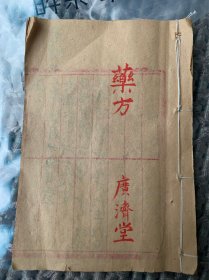 藥方
廣濟堂